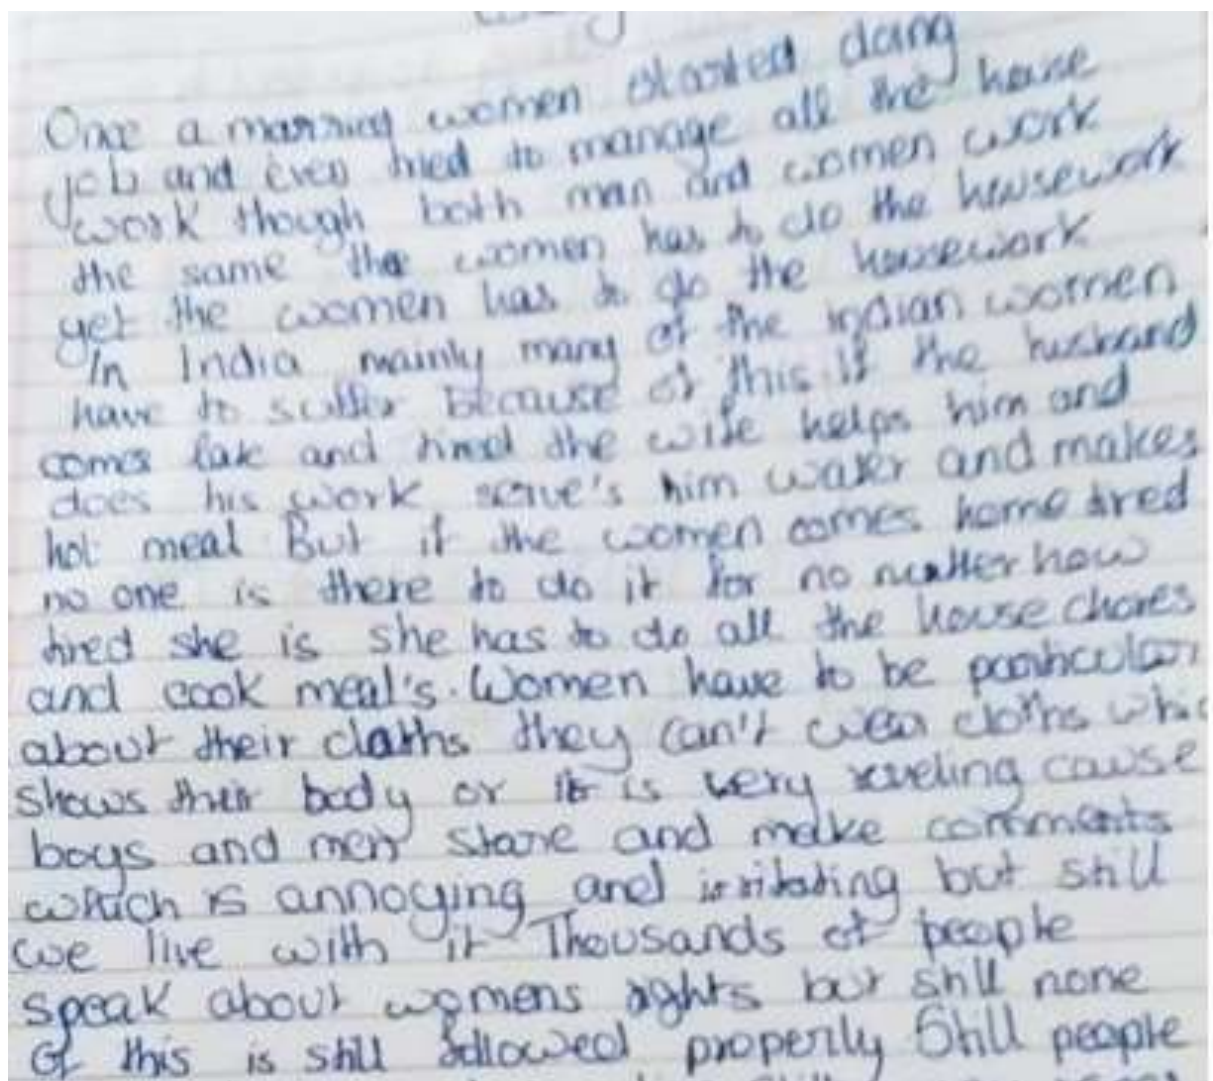 Once a married women started doing
job and even tried to manage all the house
work though both man and women work
the same the women has to do the housework
yet the women has to do the housework
In India mainly many of the indian women
have to suffer because of this. If the husband
comes late and tired the wife helps him and
does his work serve's him water and makes
hot meal But if the women comes home tired
no one is there to do it for no matter how
tired she is she has to do all the house chores
and cook meal's. Women have to be particular
about their cloths they can't wear cloths
shows their body or it is very reveling cause
boys and men stare and make comments
which is annoying and irritating but still
we live with it Thousands of people
speak about womens rights but still none
of this is still followed properly Still people